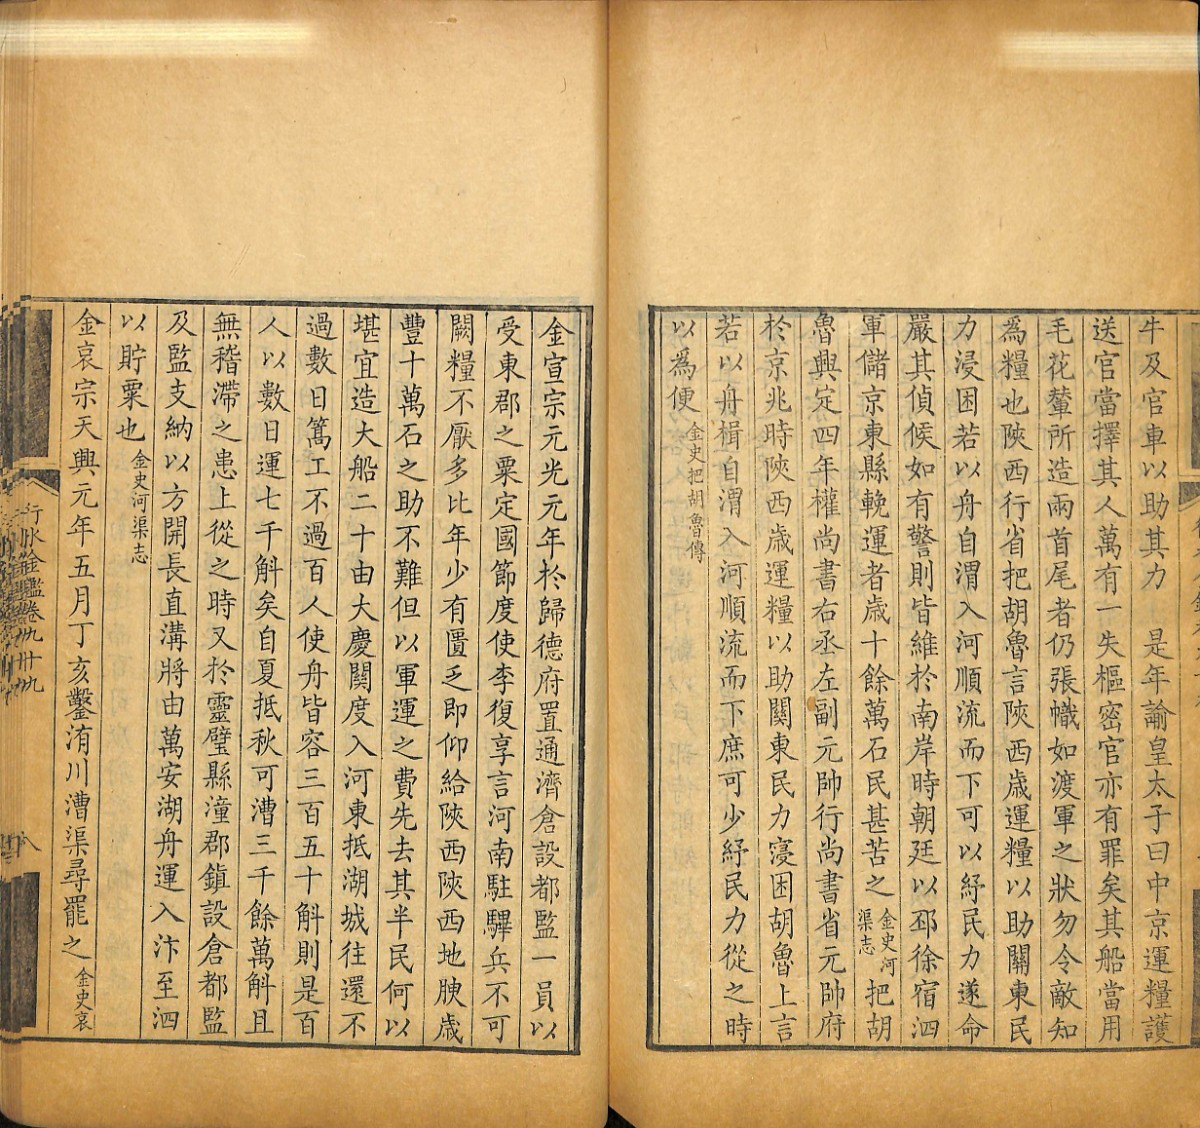 牛及官車以助其力　是年諭皇太子曰中京運糧護
送官當擇其人萬有一失樞密官亦有罪矣其船當用
毛花輦所造兩首尾者仍張幟如渡軍之狀勿令敵知
為糧也陝西行省把胡魯言陝西歲運糧以助關東民
力浸困若以舟自渭入河順流而下可以紓民力遂命
嚴其偵候如有警則皆維於南岸時朝廷以邳徐宿泗
軍儲京東縣輓運者歲十餘萬石民甚苦之金史河渠志把胡
魯興定四年權尚書右丞左副元帥行尚書省元帥府
於京兆時陝西歲運糧以助關東民力寖困胡魯上言
若以舟楫自渭入河順流而下庶可少紓民力從之時
以為便金史把胡魯傳
金宣宗元光元年於歸德府置通濟倉設都監一員以
受東郡之粟定國節度使李復享言河南駐蹕兵不可
闕糧不厭多比年少有匱乏即仰給陝西陝西地腴歲
豐十萬石之助不難但以軍運之費先去其半民何以
堪宜造大船二十由大慶關度入河東抵湖城往還不
過數日篙工不過百人使舟皆容三百五十斛則是百
人以數日運七千斛矣自夏抵秋可漕三千餘萬斛且
無稽滯之患上從之時又於靈璧縣潼郡鎮設倉都監
及監支納以方開長直溝將由萬安湖舟運入汴至泗
以貯粟也金史河渠志
金哀宗天興元年五月丁亥鑿洧川漕渠尋罷之金史哀
行水金鑑卷九十九